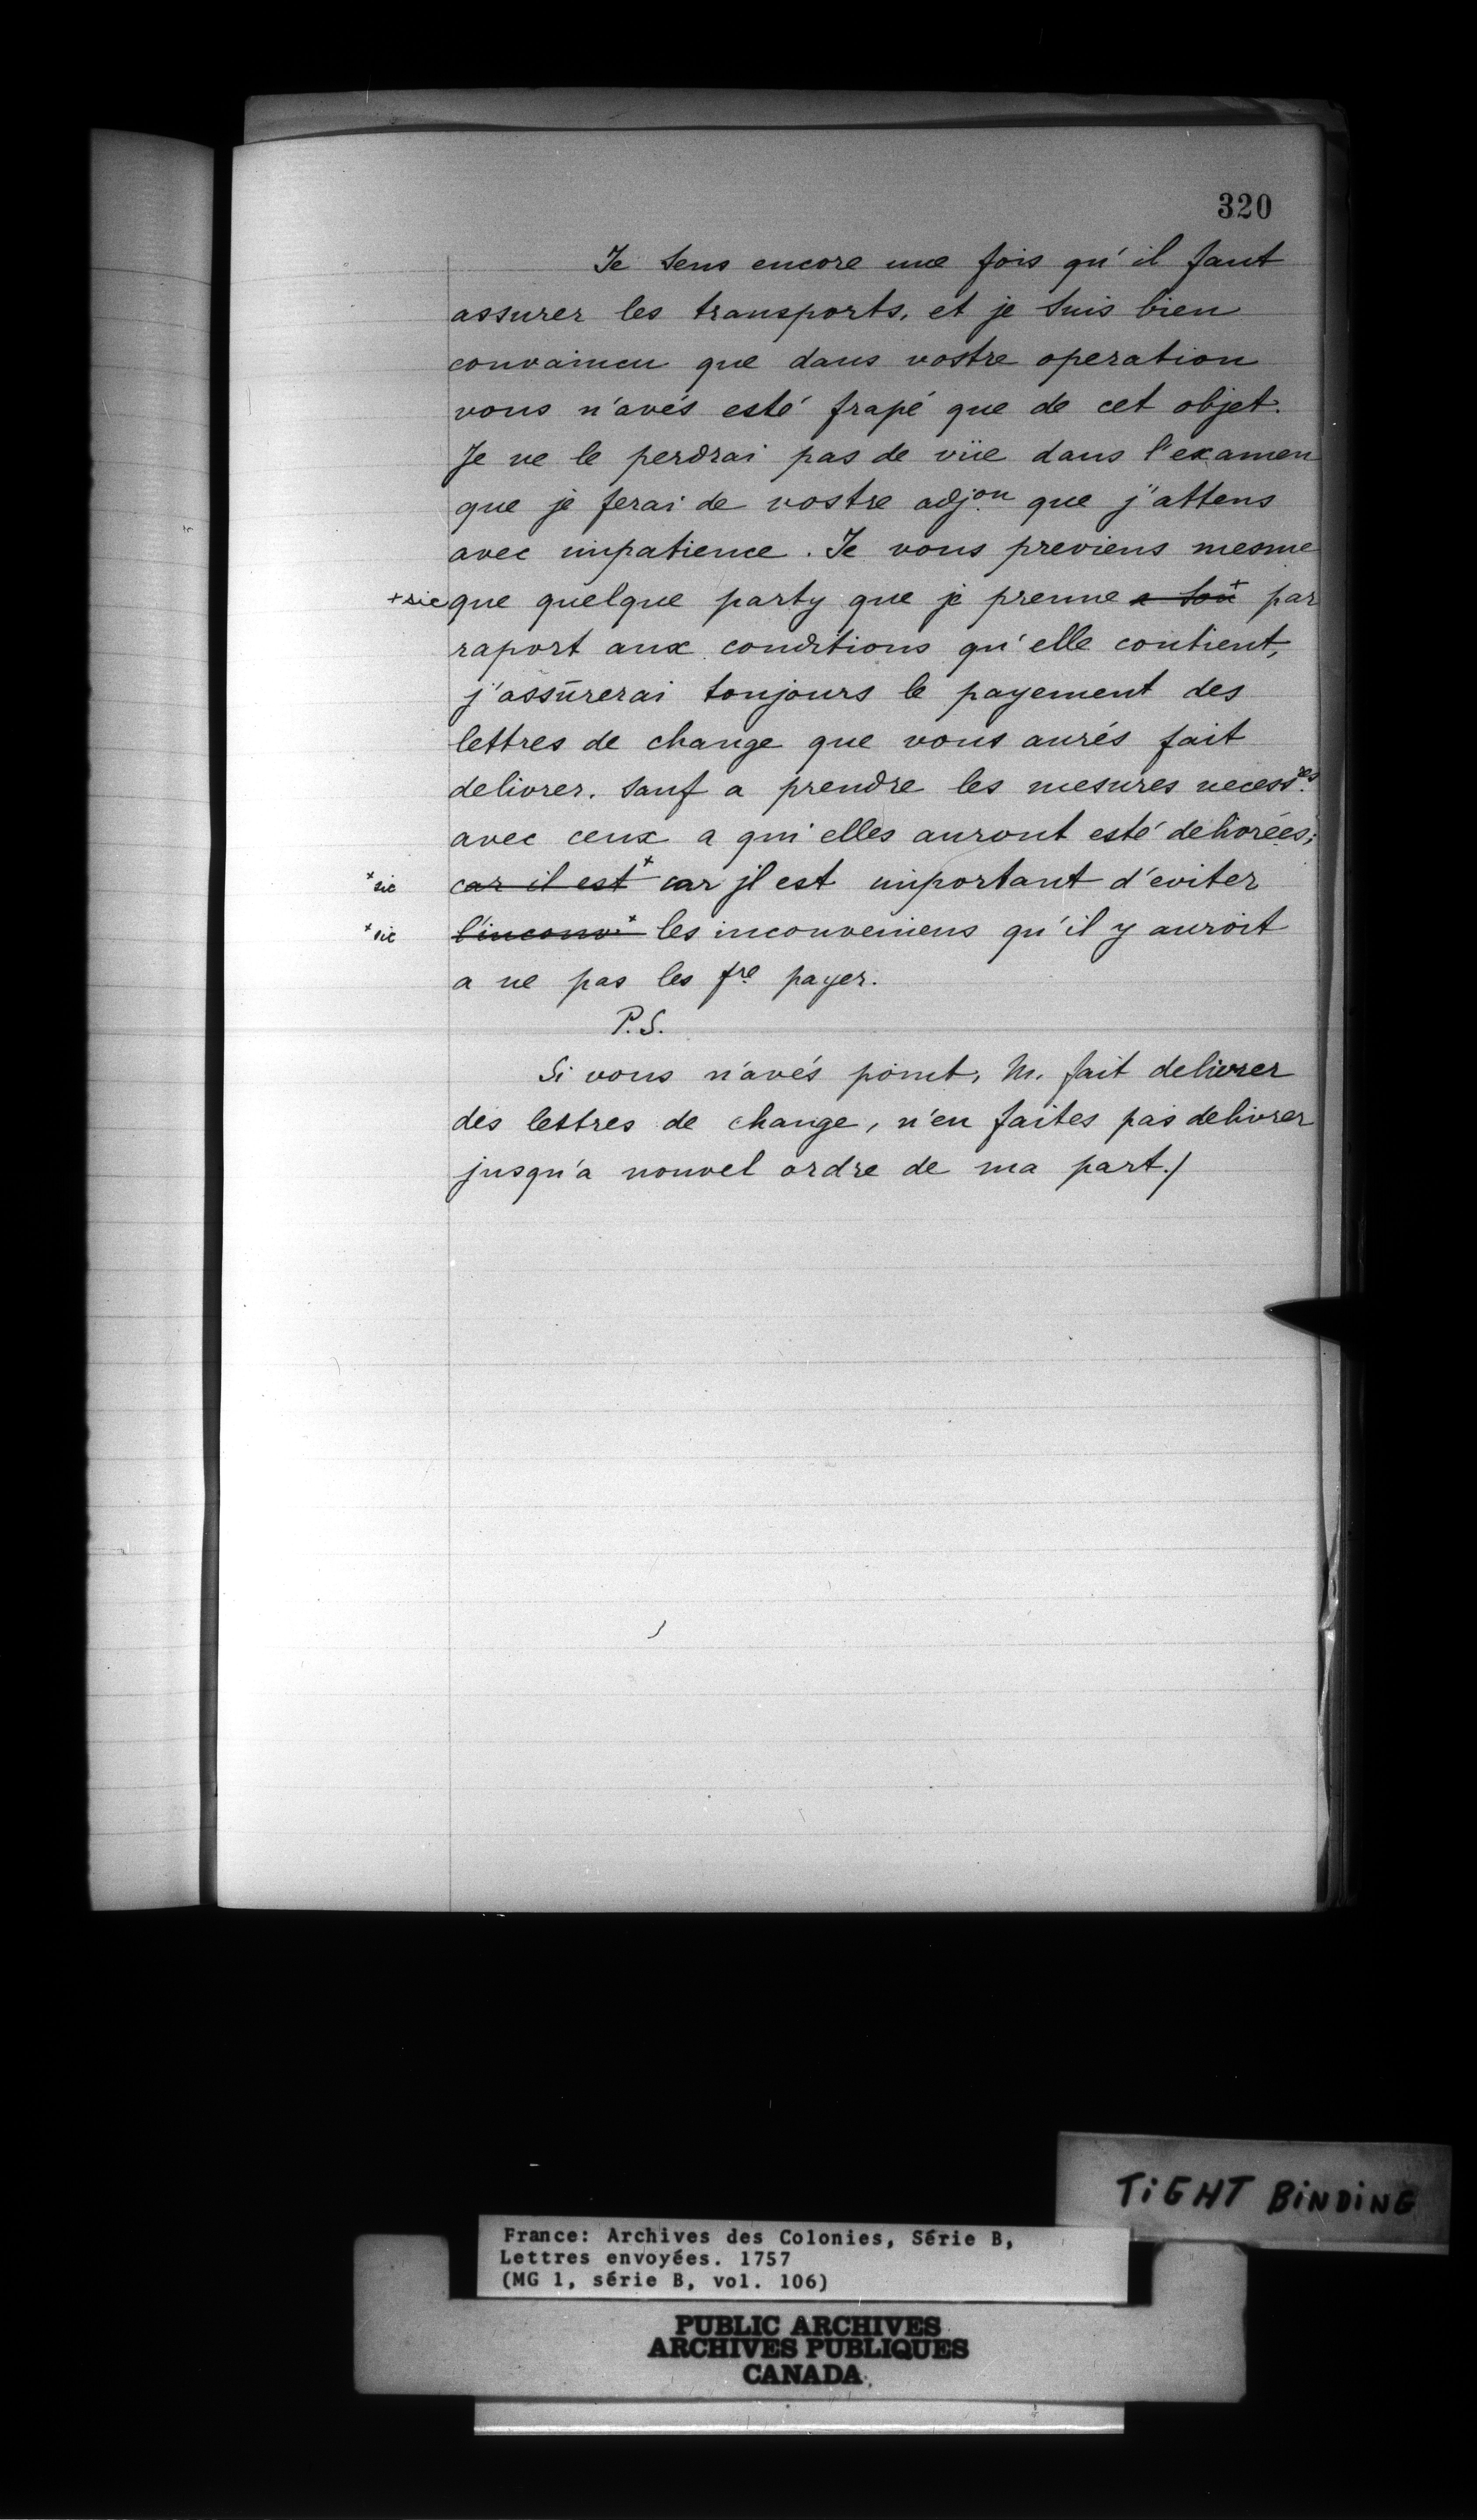 320
Je sens encore une fois qu'il faut
assurer les transports, et je suis bien
convaincu que dans vostre operation
vous n'avés esté frapé que de cet objet.
Je ne le perdrai pas de vüe dans l'examen
que je ferai de vostre adjon que j'attens
avec impatience. Je vous previens mesme
+sic que quelque party que je prenne a son+ par
raport aux conditions qu'elle contient,
j'assûrerai toujours le payement des
lettres de change que vous aurés fait
delivrer. sauf a prendre les mesures necessres
avec ceux a qui elles auront esté delivrées;
+sic car il est+ car jl est important d'eviter
+sic l'inconvi+ les inconveniens qu'il y auroit
a ne pas les fre payer.
P.S.
Si vous n'avés point, M. fait delivrer
des lettres de change, n'en faites pas delivrer
jusqu'a nouvel ordre de ma part./
TIGHT BINDING
France: Archives des Colonies, Série B,
Lettres envoyées. 1757
(MG 1, série B, vol. 106)
PUBLIC ARCHIVES
ARCHIVES PUBLIQUES
CANADA